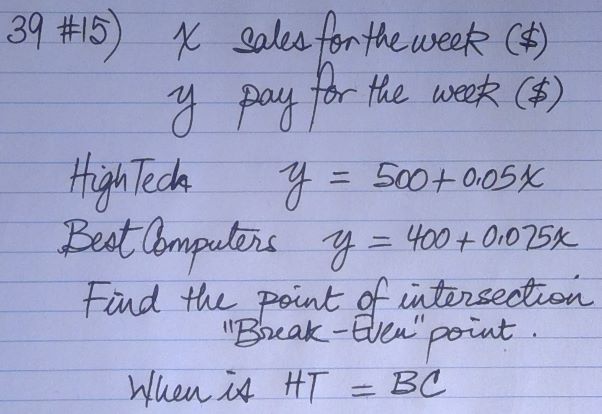 39 #15) x sales for the week ($)
y pay for the week ($)
High Tech y = 500 + 0.05x
Best Computers y = 400 + 0.075x
Find the point of intersection
"Break-Even" point.
When is HT = BC